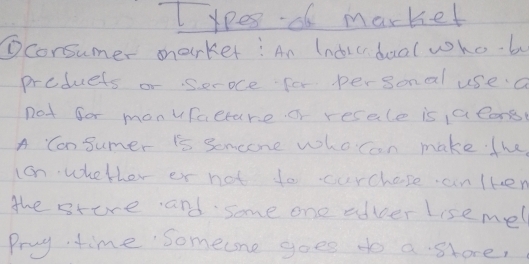 Types of market
① Consumer market : An Individual who bu
products or service for personal use a
not for manufacture or resale is, a cons
A Consumer is someone who can make the
ion whether or not to purchase an item
the store and some one advertisement
Prug time Someone goes to a store,